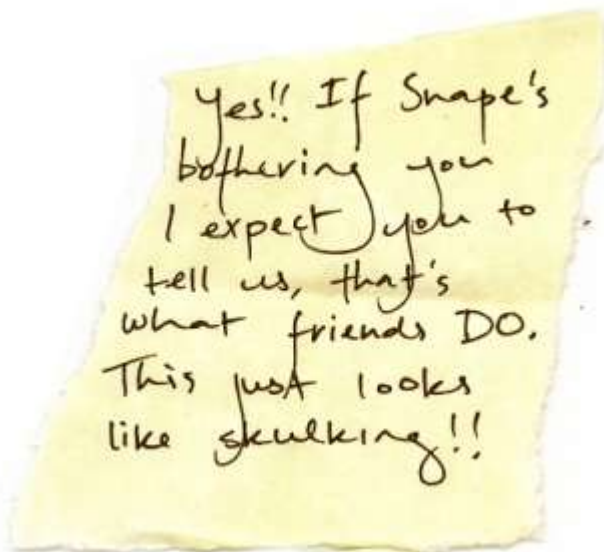 Yes!! If Snape's
bothering you
I expect you to
tell us, that's
what friends DO.
This just looks
like skulking!!